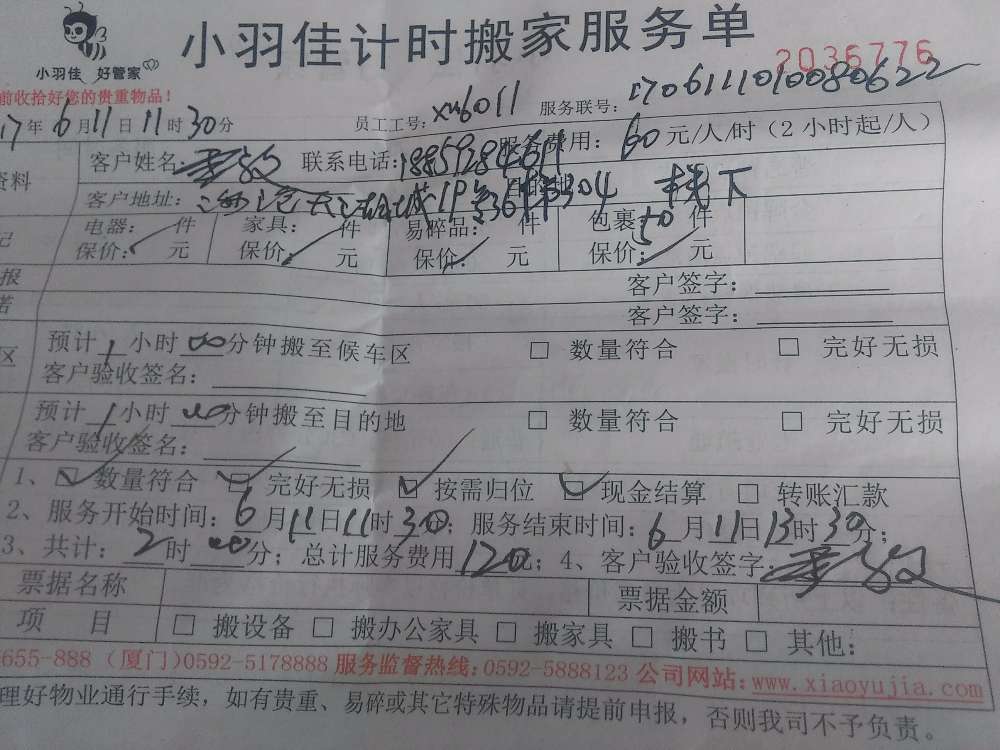 小羽佳计时搬家服务单
小羽佳 好管家
2036776
前收拾好您的贵重物品!
17年6月11日11时30分 员工工号:xm6011 服务联号:1706111010080622
资料 客户姓名: 联系电话: 服务费用:60元/人/时(2小时起/人)
客户地址: 304 楼下
记 电器: 件 家具: 件 易碎品: 件 包裹:50件
保价: 元 保价: 元 保价: 元 保价: 元
报 客户签字:
诺 客户签字:
区 预计1小时00分钟搬至候车区 □ 数量符合 □ 完好无损
客户验收签名:
预计1小时00分钟搬至目的地 □ 数量符合 □ 完好无损
客户验收签名:
1、☑ 数量符合 ☑ 完好无损 ☑ 按需归位 ☑ 现金结算 □ 转账汇款
2、服务开始时间:6月11日11时30分;服务结束时间:6月11日13时30分;
3、共计:2时00分;总计服务费用120元;4、客户验收签字:
票据名称 票据金额
项 目 □ 搬设备 □ 搬办公家具 □ 搬家具 □ 搬书 □ 其他:
655-888 (厦门)0592-5178888 服务监督热线:0592-5888123 公司网站:www.xiaoyujia.com
理好物业通行手续,如有贵重、易碎或其它特殊物品请提前申报,否则我司不予负责。